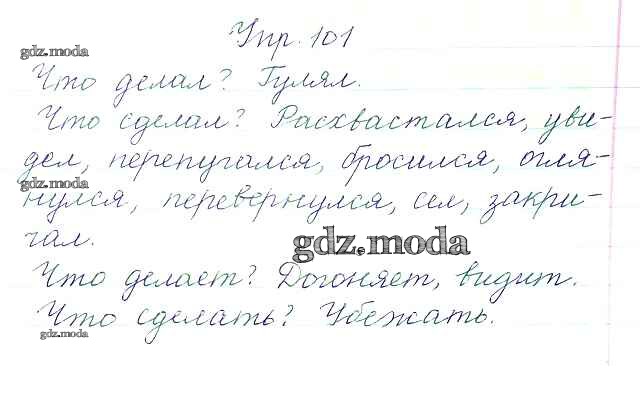 Упр. 101
gdz.moda
Что делал? Гулял.
Что сделал? Расхвастался, уви-
дел, перепугался, бросился, огля-
gdz.moda
нулся, перевернулся, сел, закри-
чал.
gdz.moda
Что делает? Догоняет, видит.
Что сделать? Убежать.
gdz.moda